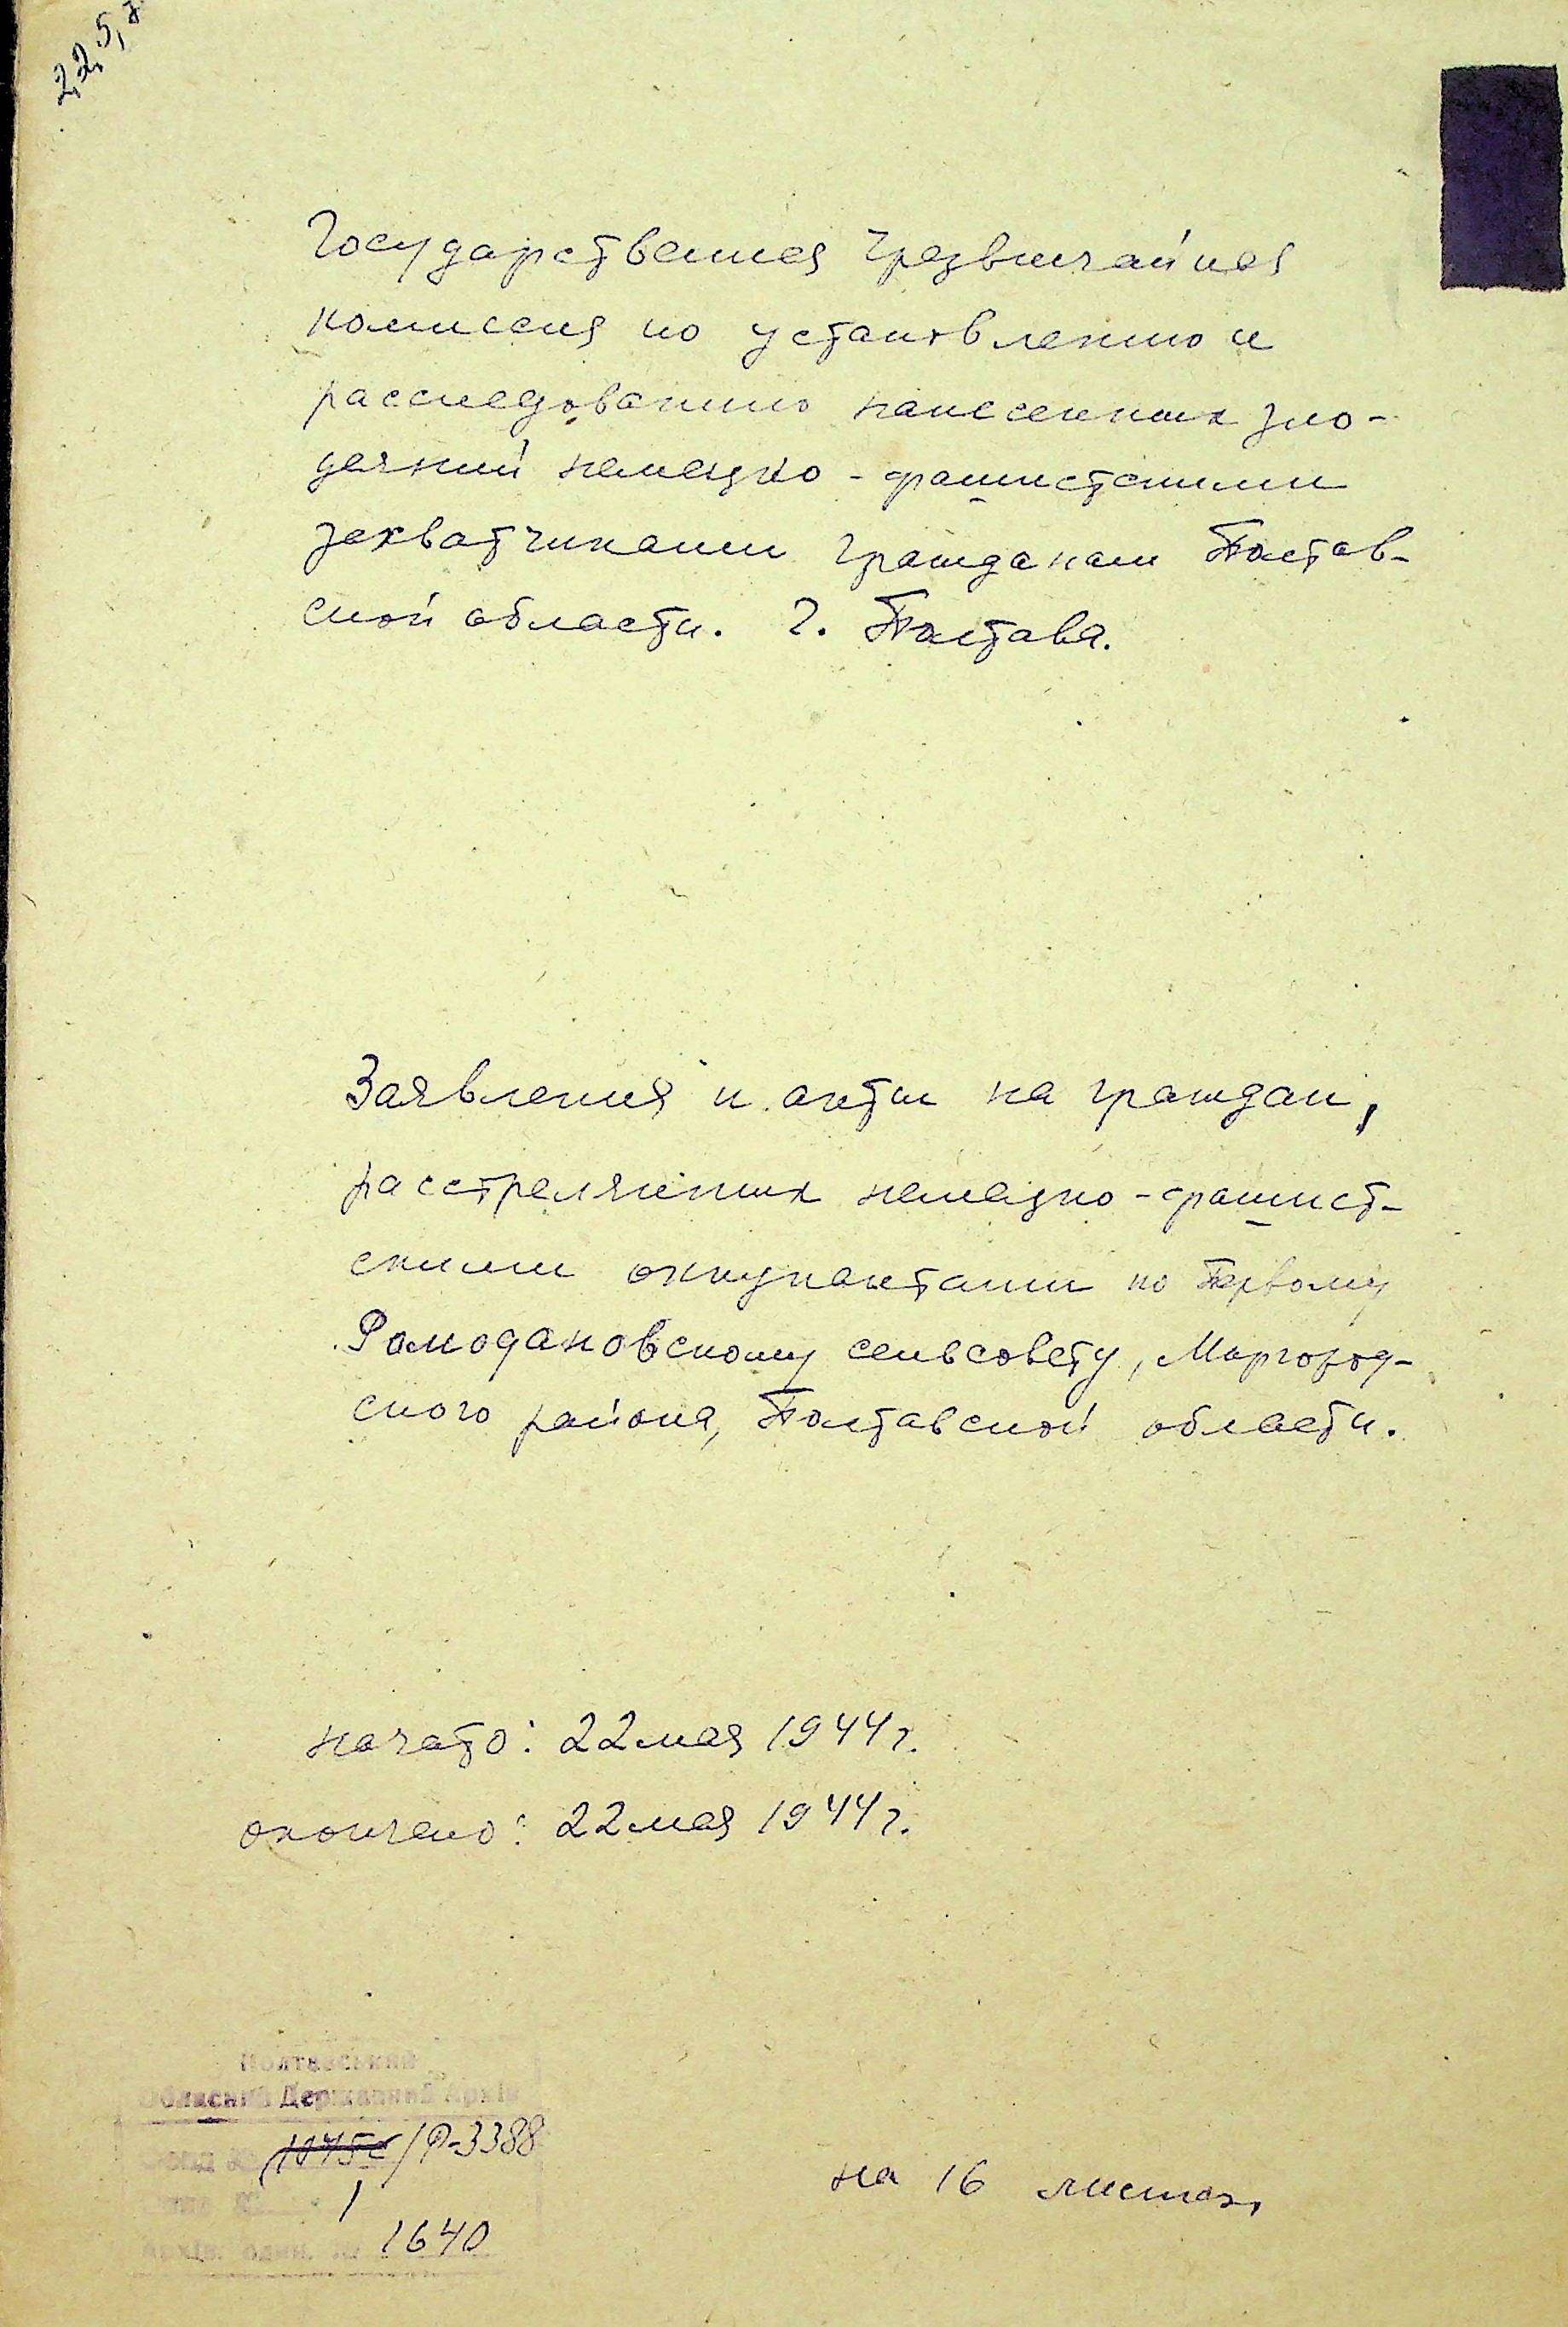 22.5,7
Государственная Чрезвычайная
комиссия по установлению и
расследованию нанесенных зло-
деяний немецко-фашистскими
захватчиками гражданам Полтав-
ской области. г. Полтава.
Заявления и акты на граждан,
расстрелянных немецко-фашист-
скими оккупантами по Первому
Ромодановскому сельсовету, Миргород-
ского района, Полтавской области.
начато: 22 мая 1944 г.
окончено: 22 мая 1944 г.
Полтавський
Обласний Державний Архів
Фонд № 1075с/Р-3388
1
Архів. один. № 1640
на 16 листах,